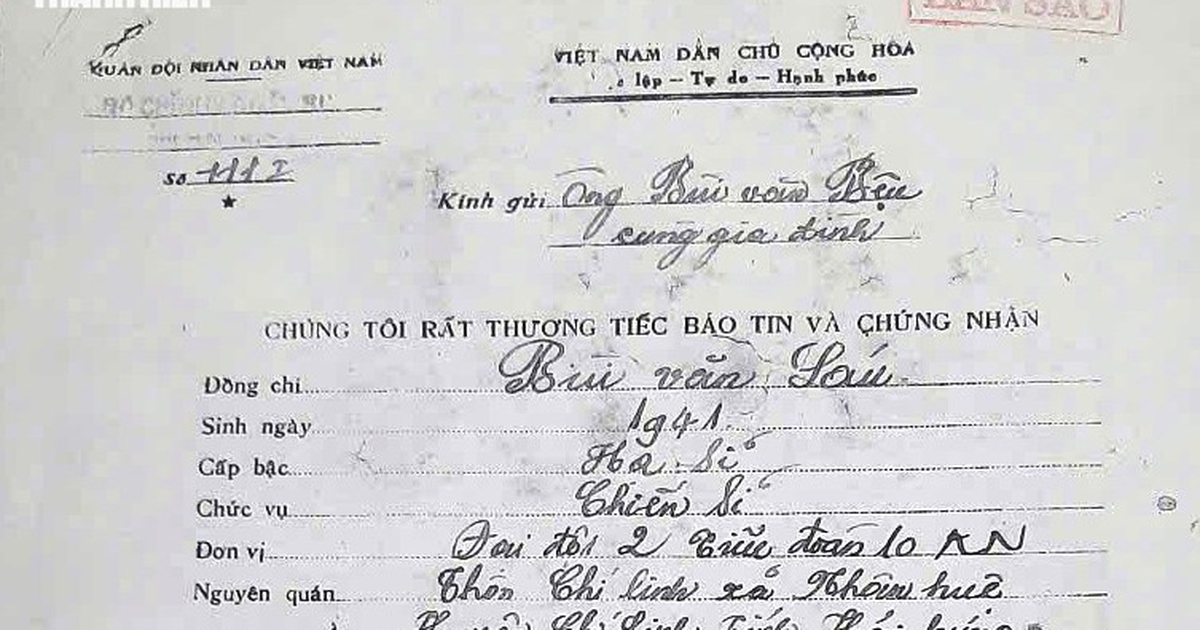 THANH NIÊN
BẢN SAO
QUÂN ĐỘI NHÂN DÂN VIỆT NAM
VIỆT NAM DÂN CHỦ CỘNG HÒA
lập – Tự do – Hạnh phúc
Số 1112
Kính gửi Ông Bùi văn Bệu
cùng gia đình
CHÚNG TÔI RẤT THƯƠNG TIẾC BÁO TIN VÀ CHỨNG NHẬN
Đồng chí Bùi văn Sáu
Sinh ngày 1941
Cấp bậc Hạ sĩ
Chức vụ Chiến sĩ
Đơn vị Đại đội 2 Tiểu đoàn 10 KN
Nguyên quán Thôn Chí linh xã Nhân huệ
Chí Linh Tỉnh